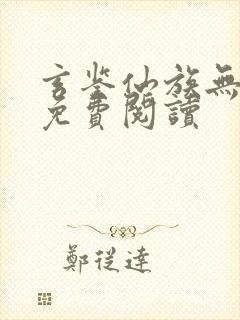 玄鉴仙族無
免費閱讀
鄭從達